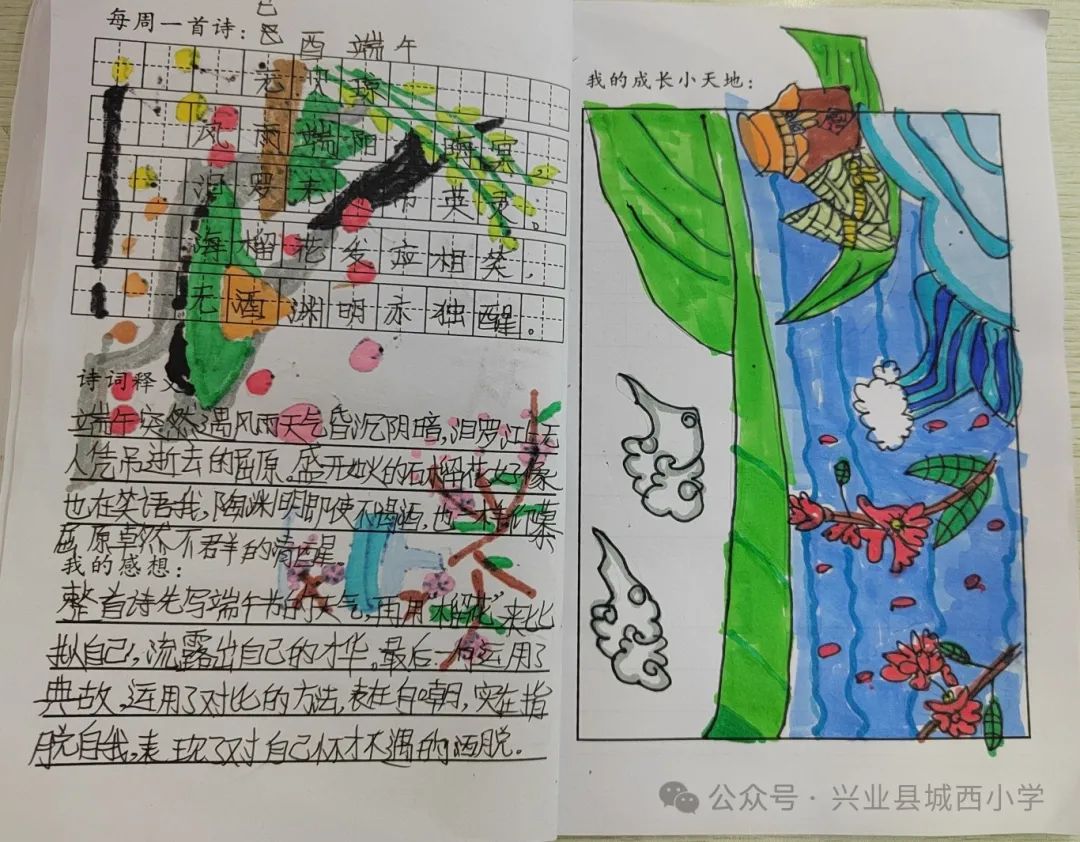 每周一首诗：
己酉端午
元 贝琼
风雨端阳 晦冥，
汨罗无 吊英灵。
海榴花发应相笑，
无酒渊明亦独醒。
诗词释义
端午突然遇风雨天气昏沉阴暗，汨罗江上无
人凭吊逝去的屈原。盛开如火的石榴花好像
也在笑语我，陶渊明即使不喝酒，也一样仰慕
屈原卓然不群的清醒。
我的感想：
整首诗先写端午节的天气，再用“榴花”来比
拟自己，流露出自己的才华。最后一句运用了
典故，运用了对比的方法，表在自嘲，实在指
脱自我，表现了对自己怀才不遇的洒脱。
我的成长小天地：
公众号·兴业县城西小学